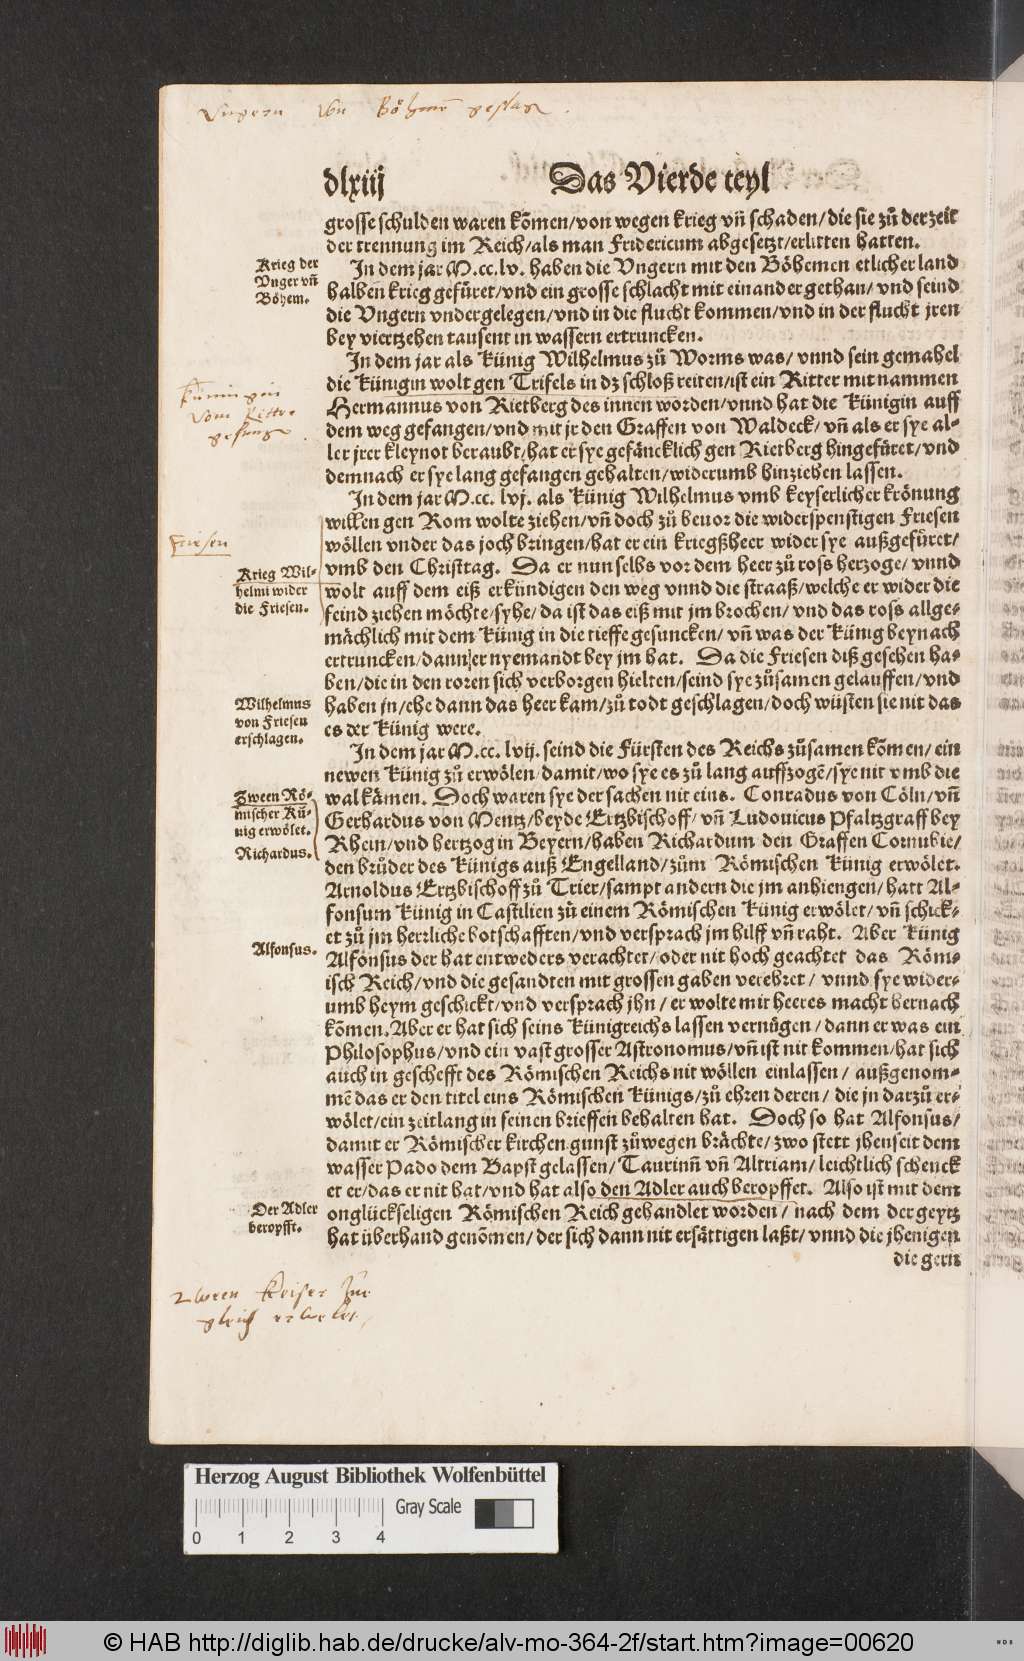 Vngern von Böhmē geslagē.
dlxiij
Das Vierde teyl
grosse schulden waren kōmen/von wegen krieg vñ schaden/die sie zů der zeit
der trennung im Reich/als man Fridericum abgesetzt/erlitten hatten.
Krieg der
Vnger vñ
Böhem.
In dem jar M.cc.lv. haben die Vngern mit den Böhemen etlicher land
halben krieg gefüret/vnd ein grosse schlacht mit einander gethan/ vnd seind
die Vngern vndergelegen/vnd in die flucht kommen/vnd in der flucht jren
bey viertzehen tausent in wassern ertruncken.
In dem jar als Künig Wilhelmus zů Worms was/ vnnd sein gemahel
die Künigin wolt gen Trifels in dz schloß reiten/ist ein Ritter mit nammen
Hermannus von Rietberg des innen worden/vnnd hat die Künigin auff
dem weg gefangen/vnd mit jr den Graffen von Waldeck/ vñ als er sye al-
ler jrer kleynot beraubt/hat er sye gefäncklich gen Rietberg hingefüret/vnd
demnach er sye lang gefangen gehalten/widerumb hinziehen lassen.
Künnigin
vom Ritter
gefange
In dem jar M.cc. lvj. als Künig Wilhelmus vmb keyserlicher krönung
willen gen Rom wolte ziehen/vñ doch zů beuor die widerspenstigen Friesen
wöllen vnder das joch bringen/hat er ein kriegßheer wider sye außgefüret/
vmb den Christtag. Da er nun selbs vor dem heer zů ross herzoge/ vnnd
wolt auff dem eiß erkündigen den weg vnnd die straaß/welche er wider die
feind ziehen möchte/syhe/ da ist das eiß mit jm brochen/ vnd das ross allge-
mächlich mit dem Künig in die tieffe gesuncken/ vñ was der Künig beynach
ertruncken/dann er nyemandt bey jm hat. Da die Friesen diß gesehen ha-
ben/die in den roren sich verborgen hielten/seind sye zůsamen gelauffen/vnd
haben jn/ehe dann das heer kam/zů todt geschlagen/doch wüsten sie nit das
es der Künig were.
Friesen
Krieg Wil-
helmi wider
die Friesen.
Wilhelmus
von Friesen
erschlagen.
In dem jar M.cc. lvij. seind die Fürsten des Reichs zůsamen kōmen/ ein
newen Künig zů erwölen/damit/wo sye es zů lang auffzogē/sye nit vmb die
wal kämen. Doch waren sye der sachen nit eins. Conradus von Cöln/vñ
Gerhardus von Mentz/beyde Ertzbischoff/ vñ Ludouicus Pfaltzgraff bey
Rhein/vnd hertzog in Beyern/haben Richardum den Graffen Cornubie/
den brůder des Künigs auß Engelland/zům Römischen Künig erwölet.
Arnoldus Ertzbischoff zů Trier/sampt andern die jm anhiengen/hatt Al-
fonsum Künig in Castilien zů einem Römischen Künig erwölet/ vñ schick-
et zů jm herrliche botschafften/vnd versprach jm hilff vñ raht. Aber Künig
Alfonsus der hat entweders verachtet/oder nit hoch geachtet das Röm-
isch Reich/vnd die gesandten mit grossen gaben verehret/ vnnd sye wider-
umb heym geschickt/vnd versprach jhn/ er wolte mit heeres macht hernach
kōmen. Aber er hat sich seins Künigreichs lassen vernügen/ dann er was ein
Philosophus/vnd ein vast grosser Astronomus/vñ ist nit kommen/hat sich
auch in geschefft des Römischen Reichs nit wöllen einlassen/ außgenom-
mē das er den titel eins Römischen Künigs/zů ehren deren/ die jn darzů er-
wölet/ein zeitlang in seinen brieffen behalten hat. Doch so hat Alfonsus/
damit er Römischer kirchen gunst zůwegen brächte/zwo stett jhenseit dem
wasser Pado dem Bapst gelassen/ Taurinñ vñ Altriam/leichtlich schenck
et er/das er nit hat/vnd hat also den Adler auch beropffet. Also ist mit dem
onglückseligen Römischen Reich gehandlet worden/ nach dem der geytz
hat überhand genōmen/der sich dann nit ersättigen laßt/ vnnd die jhenigen
die gern
Zween Rö-
mischer Kü-
nig erwölet.
Richardus.
Alfonsus.
Der Adler
beropfft.
zween Keiser zue
gleich erwelet.
Herzog August Bibliothek Wolfenbüttel
Gray Scale
0 1 2 3 4
© HAB http://diglib.hab.de/drucke/alv-mo-364-2f/start.htm?image=00620